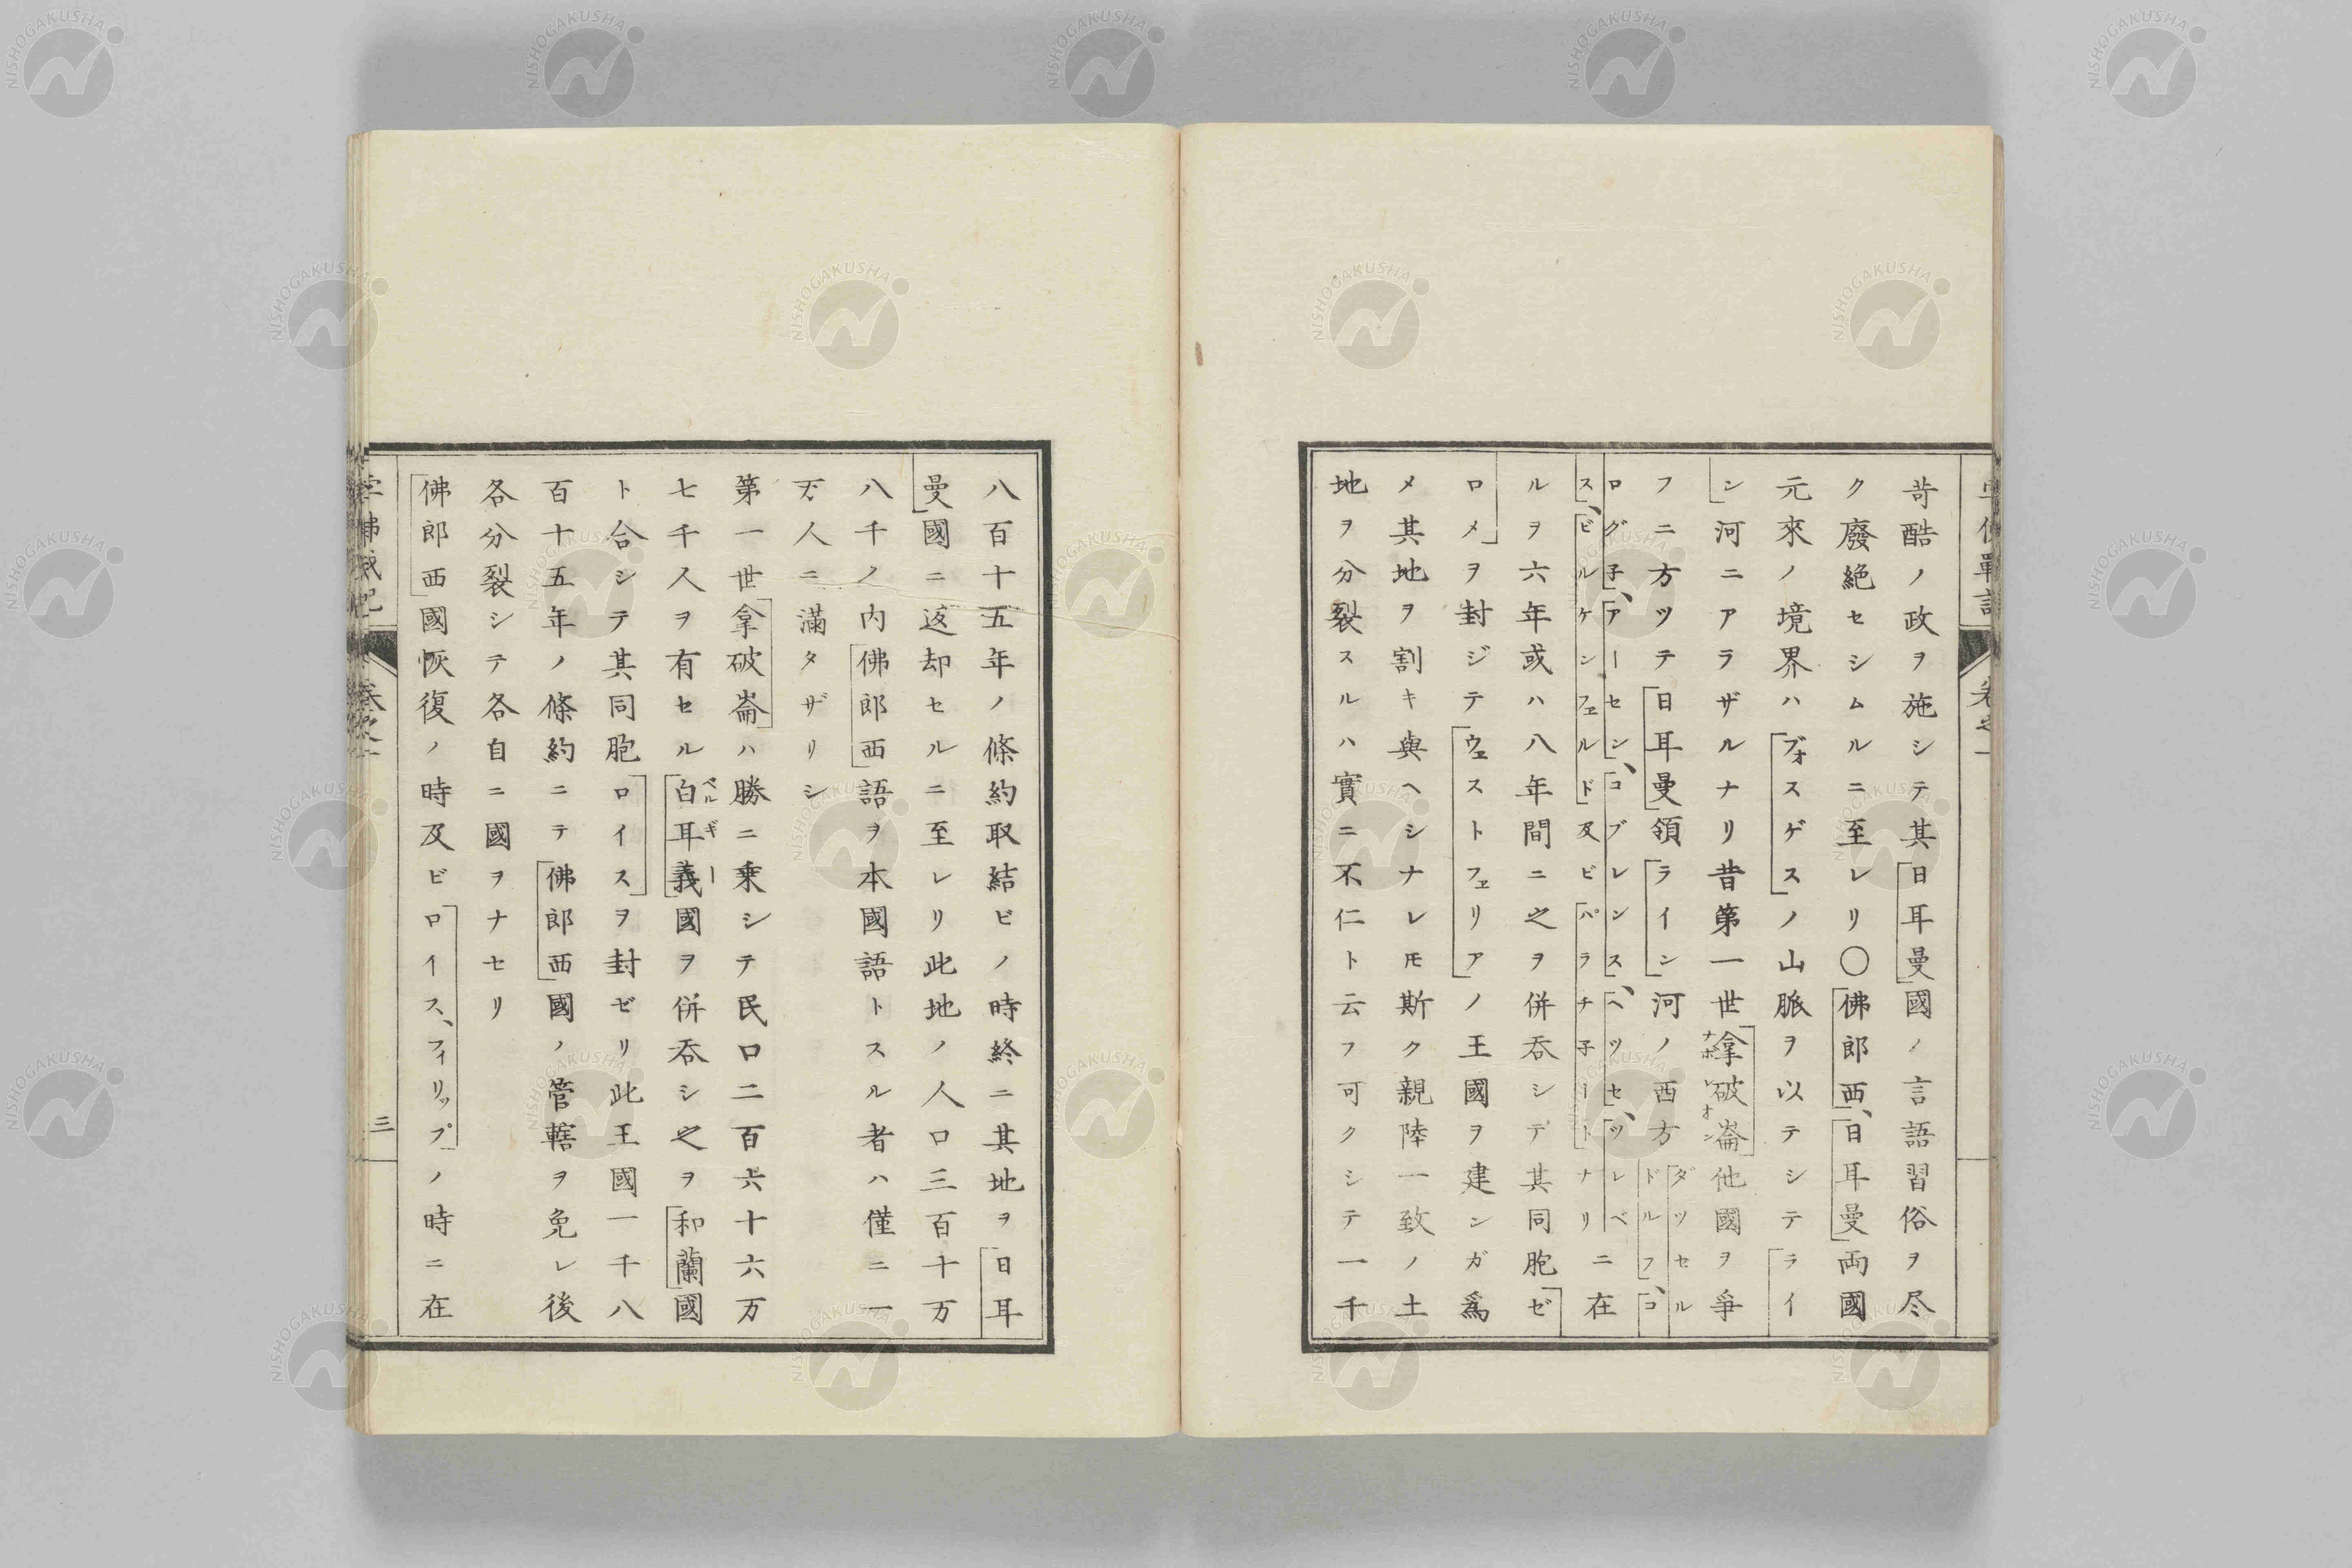 苛酷ノ政ヲ施シテ其日耳曼國ノ言語習俗ヲ尽
ク廢絶セシムルニ至レリ〇佛郎西、日耳曼両國
元來ノ境界ハブォスゲスノ山脈ヲ以テシテライ
ン河ニアラザルナリ昔第一世拿破崙他國ヲ爭
ナポレオン
フニ方ツテ日耳曼領ライン河ノ西方
ダツセル
ドルフ、コ
ログ子、アーセン、コブレンス、ヘツセ、ツレベ
ス、ビルケンフェルド及ビパラチ子ートナリ
ニ在
ルヲ六年或ハ八年間ニ之ヲ併吞シテ其同胞ゼ
ロメヲ封ジテウェストフェリアノ王國ヲ建ンガ爲
メ其地ヲ割キ與ヘシナレ𪜈斯ク親陸一致ノ土
地ヲ分裂スルハ實ニ不仁ト云フ可クシテ一千
卷之一
八百十五年ノ條約取結ビノ時終ニ其地ヲ日耳
曼國ニ返却セルニ至レリ此地ノ人口三百十万
八千ノ内佛郎西語ヲ本國語トスル者ハ僅ニ一
万人ニ滿タザリシ
第一世拿破崙ハ勝ニ乗シテ民口二百六十六万
七千人ヲ有セル白耳義國ヲ併吞シ之ヲ和蘭國
ベルギー
ト合シテ其同胞ロイスヲ封ゼリ此王國一千八
百十五年ノ條約ニテ佛郎西國ノ管轄ヲ免レ後
各分裂シテ各自ニ國ヲナセリ
佛郎西國恢復ノ時及ビロイス、フィリップノ時ニ在
三